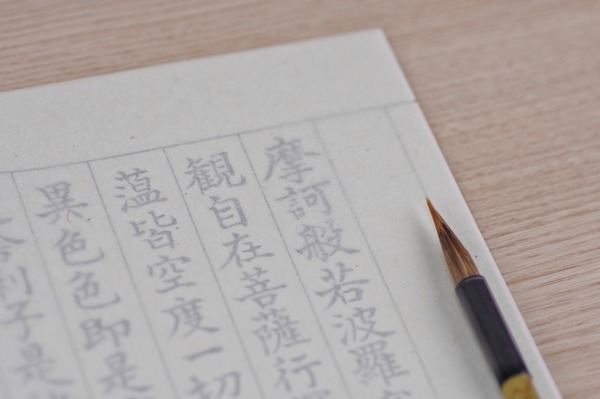 摩訶般若波羅
観自在菩薩行
薀皆空度一切
異色色即是
利子是